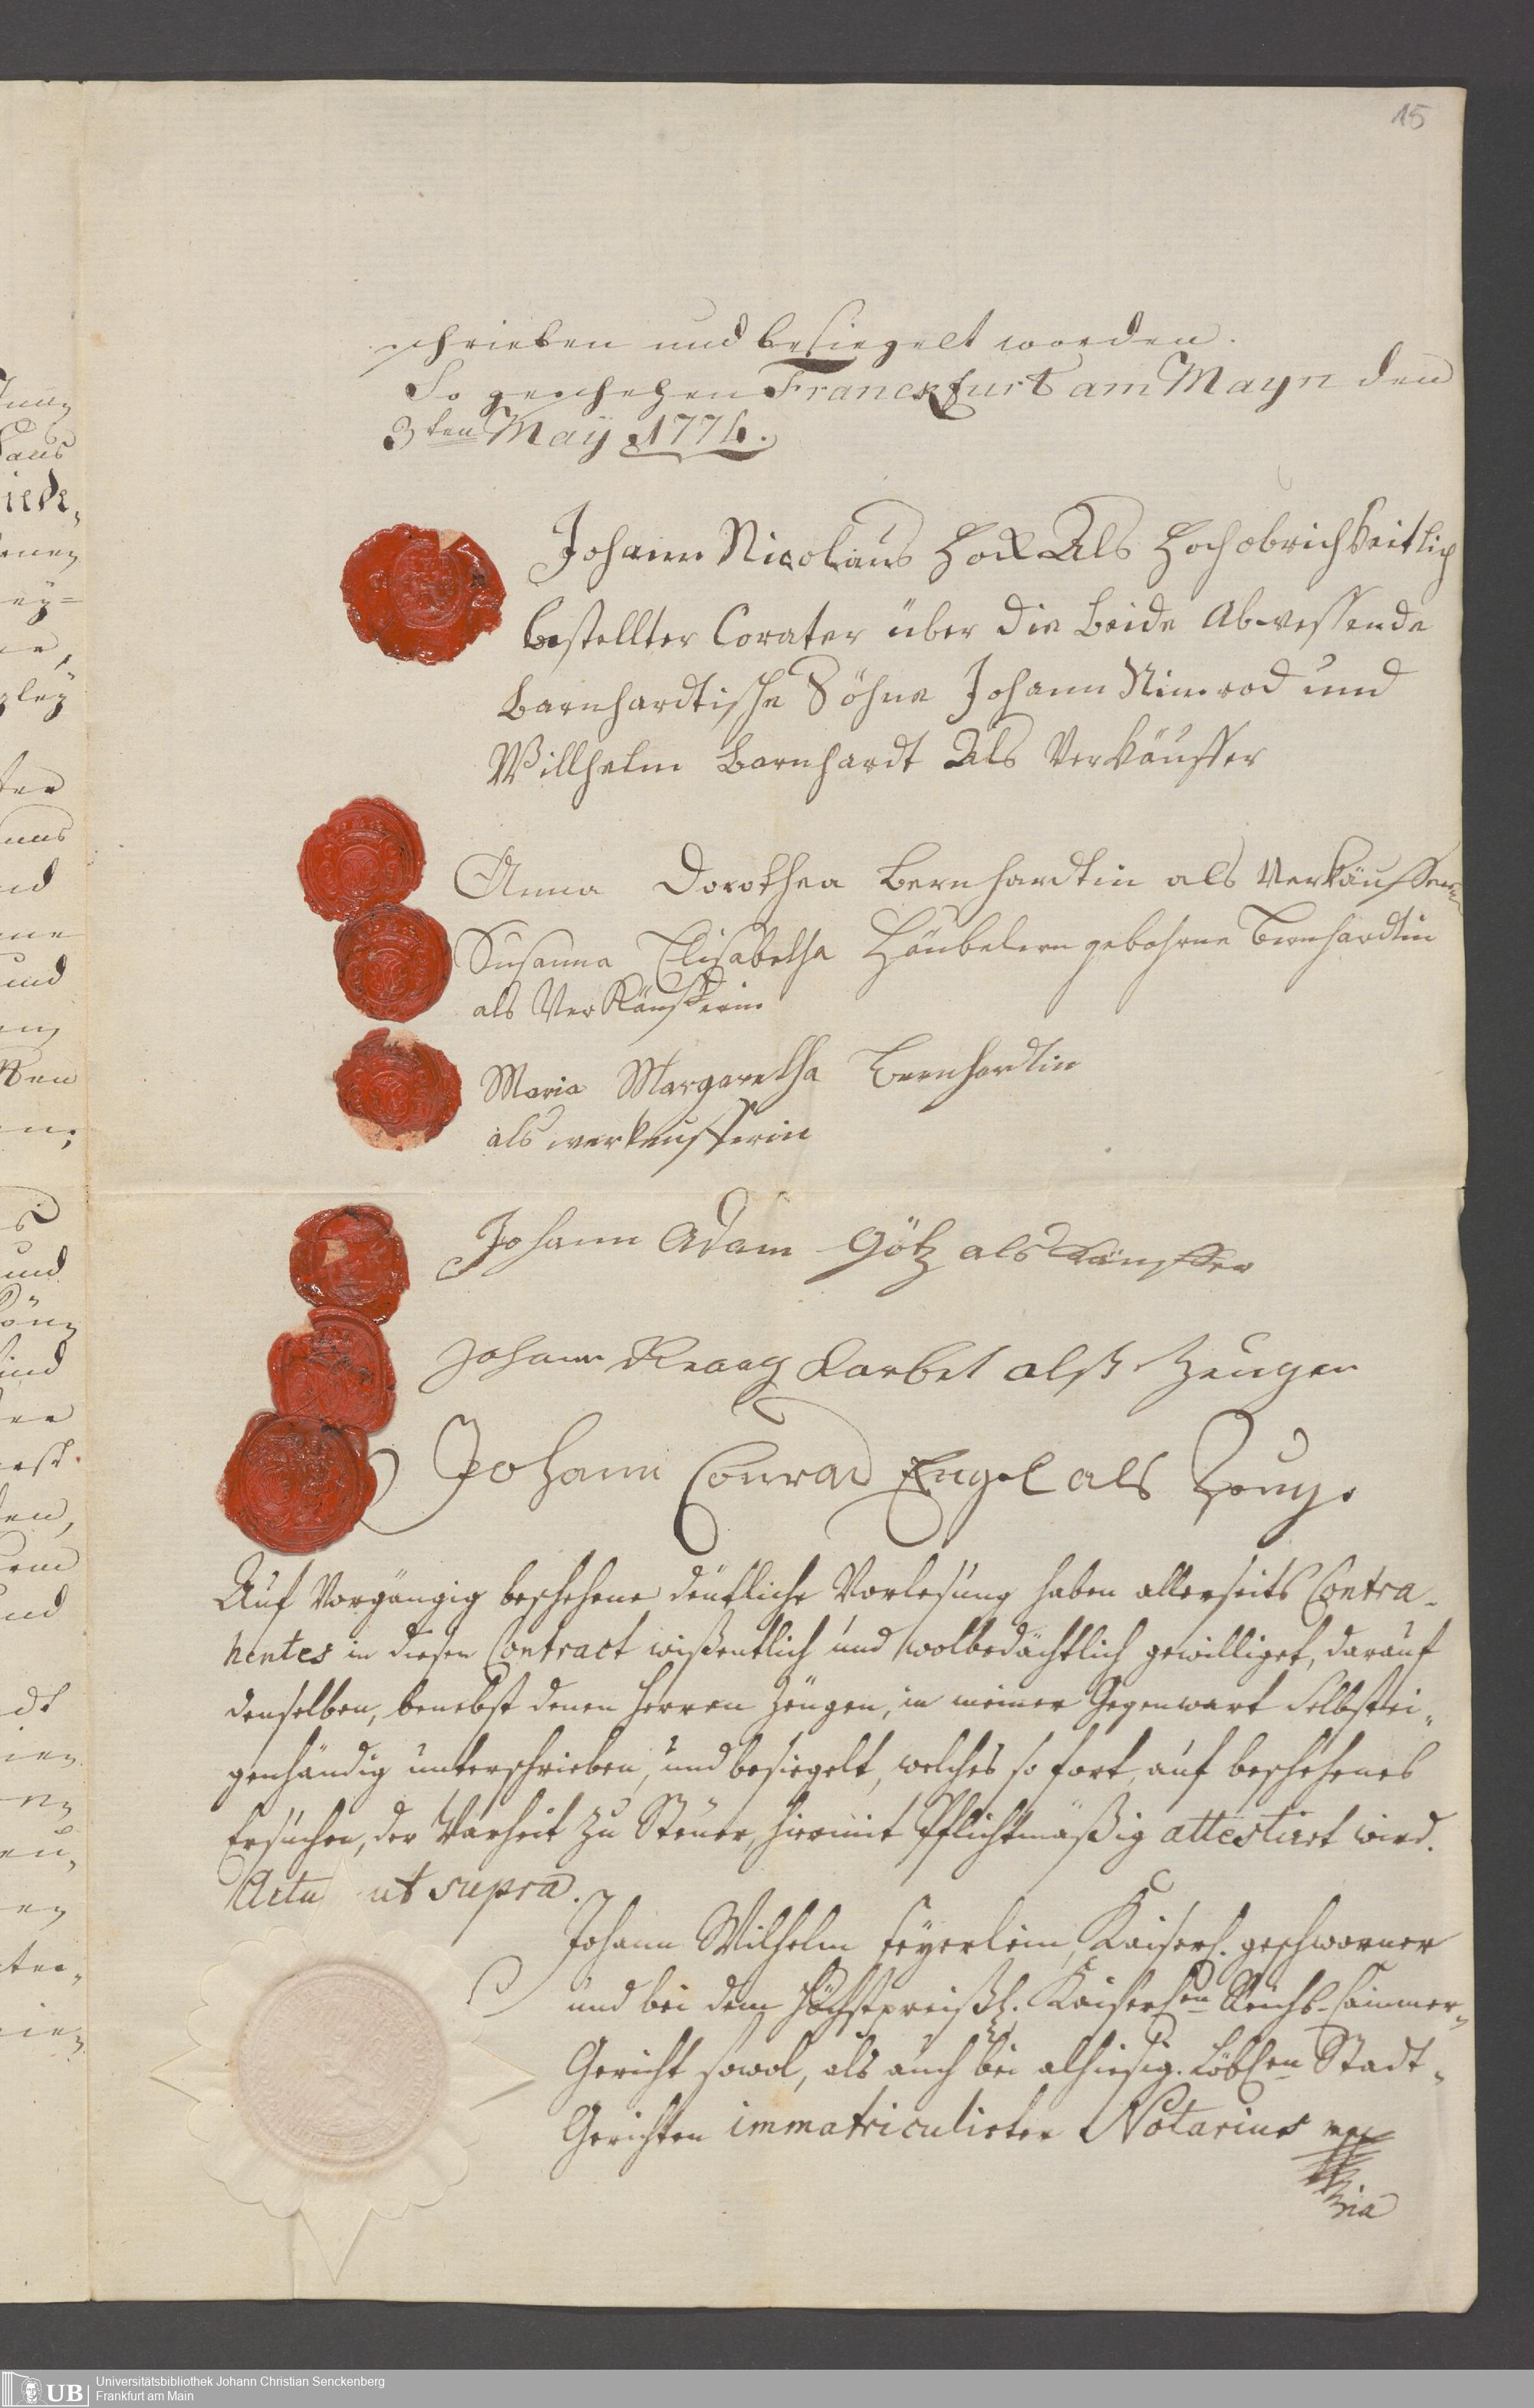 15
schrieben und besiegelt worden.
So geschehen Franckfurt am Mayn den
3ten May 1774.
Johann Nicolaus Als Hochobrichkeitlich
bestellter Corater über die beide Abwessende
Barnhardtische Söhne Johann Nimrod und
Willhelm Barnhardt Als Verkäuffer
Anna Dorothea Bernhardtin als Verkäufferin
Susanna Elisabetha gebohrne Bernhardtin
als Verkäufferin
Maria Margaretha Bernhardtin
als verkeufferin
Johann Adam Götz als Käuffer
Johann alß Zeugen
Johann Conrad Engel als Zeuge
Auf Vorgängig beschehene deutliche Vorlesung haben allerseits Contra-
hentes in diesen Contract wißentlich und wolbedächtlich gewilliget, darauf
denselben, benebst denen Herren Zeugen, in meiner Gegenwart selbstei„
genhändig unterschrieben, und besiegelt, welches so fort, auf beschehenes
Ersuchen, der Warheit zu Steuer, hiermit Pflichtmäßig attestiret wird.
Actu ut supra.
Johann Wilhelm Feyerlein, Kaiserl. geschworner
und bei dem Höchstpreißl. Kaiserlen Reichs-Cammer„
Gericht sowol, als auch bei alhiesig. Löblen Stadt„
Gerichten immatriculirter Notarius mpp
ria
UB
Universitätsbibliothek Johann Christian Senckenberg
Frankfurt am Main